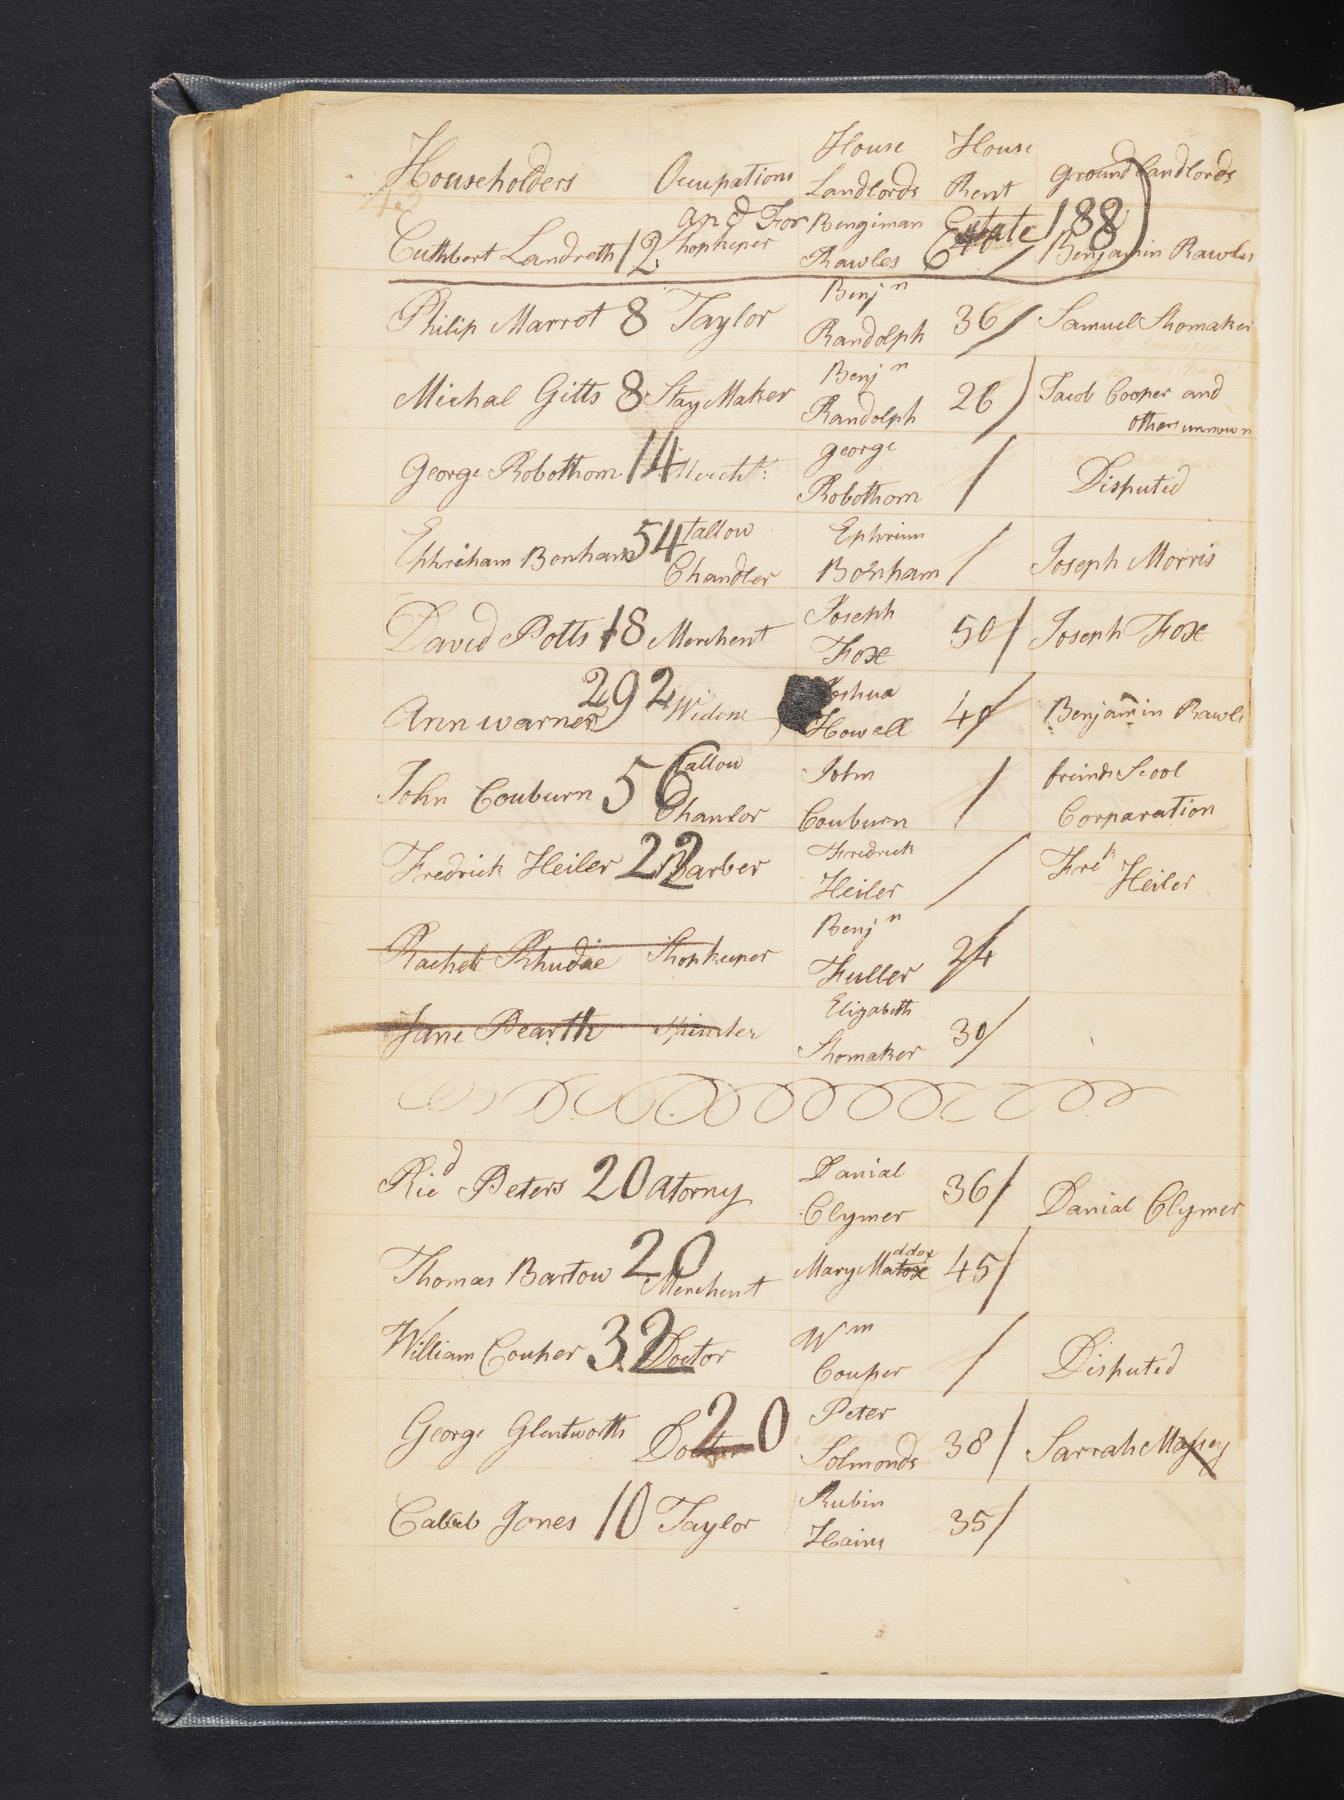 Householders Occupations House Landlords House Rent Ground Landlords
Cuthbert Landreth 12 Shopkeeper and For Bengiman Rawles Estate 188 Benjamin Rawles
Philip Marrot 8 Taylor Benjn Randolph 36/ Samuel Shomaker
Michal Gitts 8 Stay Maker Benjn Randolph 26 Jacob Cooper and others unnown
George Robothom 14 Mercht: George Robothom / Disputed
Ephriham Bonham 54 Tallow Chandler Ephrim Bonham / Joseph Morris
David Potts 18 Merchent Joseph Fox 50/ Joseph Fox
Ann Warner 292 Widow Joshua Howell 40/ Benjamin Rawls
John Couburn 56 Tallow Chanlor John Couburn / freinds Scool Corparation
Fredrick Heiler 22 Barber Fredrick Heiler / Frek Heiler
Rachel Rhudie Shopkeeper Benjn Fuller 24
Jane Pearth Elizabeth Shomaker 30/
Ricd Peters 20 Atorny Danial Clymer 36/ Danial Clymer
Thomas Bartow 20 Merchent Mary Maddox 45/
William Couper 32 Doctor Wm Couper / Disputed
George Glentworth 20 Doctor Peter Solmonds 38/ Sarrah Massey
Caleb Jones 10 Taylor Rubin Hains 35/